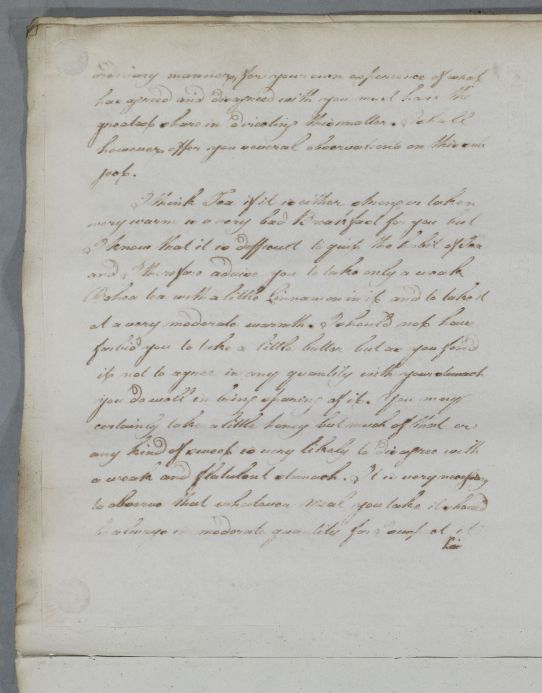 ordinary manner, for your own experience of what
has agreed and disagreed with you must have the
greatest share in directing this matter. I shall
however offer you several observations on this sub
ject.
I think Tea if it is either strong or taken
very warm is a very bad Breakfast for you but
I know that it is difficult to quit the habit of Tea
and I therefore advise you to take only a weak
Bohea tea with a little Cinnamon in it and to take it
at a very moderate warmth. I should not have
forbid you to take a little butter but as you find
it not to agree in any quantity with your stomach
you do well in being sparing of it. You may
certainly take a little honey but much of that or
any kind of sweet is very likely to disagree with
a weak and flatulent stomach. It is very necessary
to observe that whatever meal you take it should
be always in moderate quantity for I